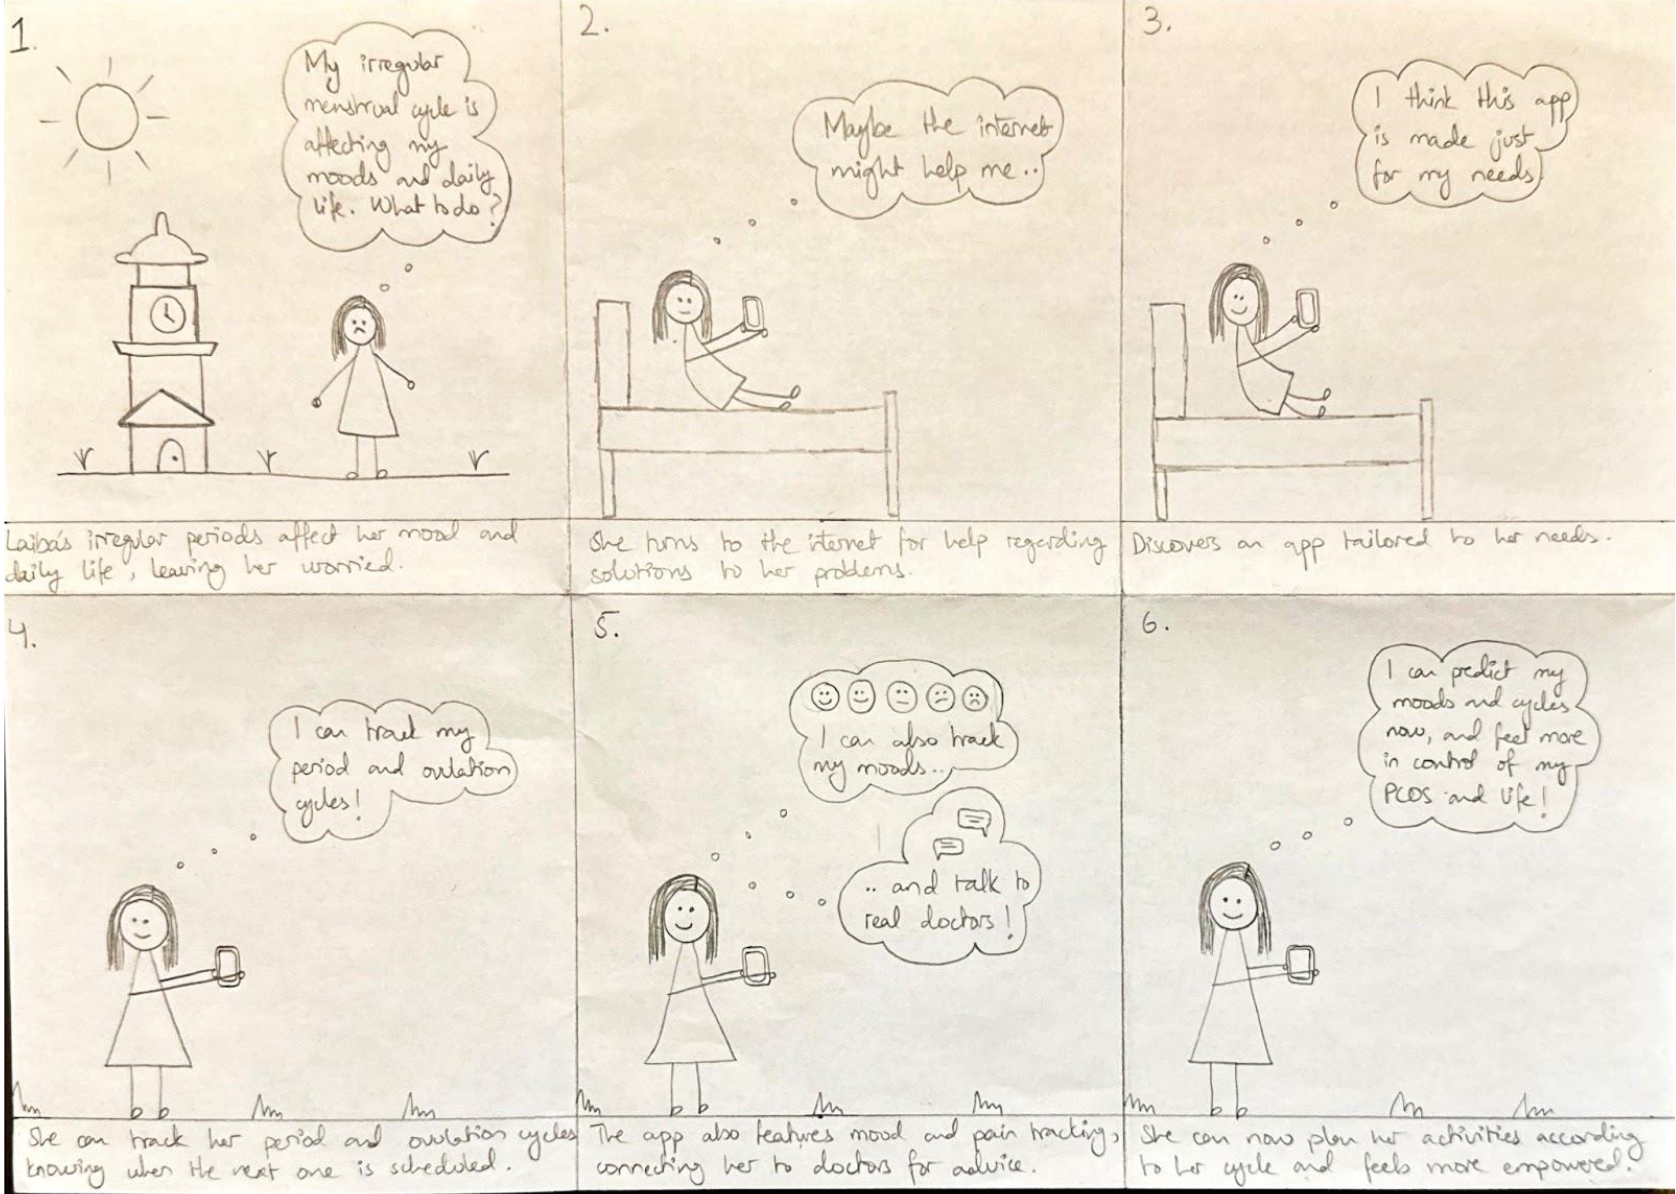 1.
My irregular
menstrual cycle is
affecting my
moods and daily
life. What to do?
Laiba's irregular periods affect her mood and
daily life, leaving her worried.
2.
Maybe the internet
might help me..
She turns to the internet for help regarding
solutions to her problems.
3.
I think this app
is made just
for my needs
Discovers an app tailored to her needs.
4.
I can track my
period and ovulation
cycles!
She can track her period and ovulation cycles
knowing when the next one is scheduled.
5.
I can also track
my moods..
.. and talk to
real doctors!
The app also features mood and pain tracking,
connecting her to doctors for advice.
6.
I can predict my
moods and cycles
now, and feel more
in control of my
PCOS and life!
She can now plan her activities according
to her cycle and feels more empowered.